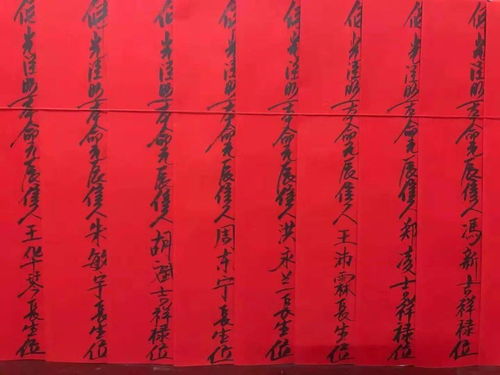 佛光注照本命元辰信人馮新吉祥禄位
佛光注照本命元辰信人郑凌吉祥禄位
佛光注照本命元辰信人王沛霖長生位
佛光注照本命元辰信人洪永兰長生位
佛光注照本命元辰信人周东宁長生位
佛光注照本命元辰信人胡斌吉祥禄位
佛光注照本命元辰信人朱敏宁長生位
佛光注照本命元辰信人王华琴長生位